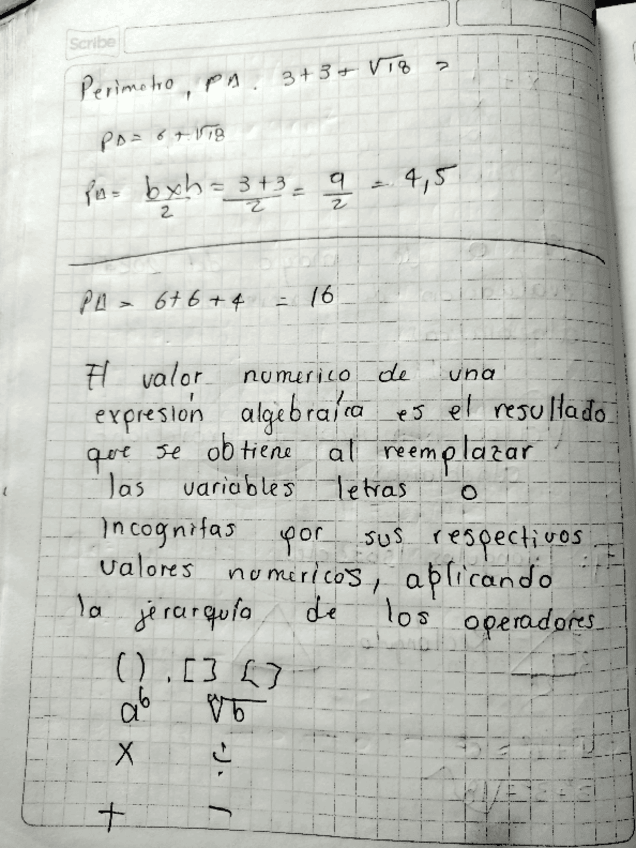 Scribe
Perimetro, P△. 3+3+√18 =
P△= 6+√18
P△= bxh/2 = 3+3/2 = 9/2 = 4,5
P△ = 6+6+4 = 16
El valor numerico de una
expresión algebraíca es el resultado
que se obtiene al reemplazar
las variables letras o
Incognitas por sus respectivos
valores numericos, aplicando
la jerarquía de los operadores
( ) . [ ] { }
a^b ⁿ√b
x ÷
+ -